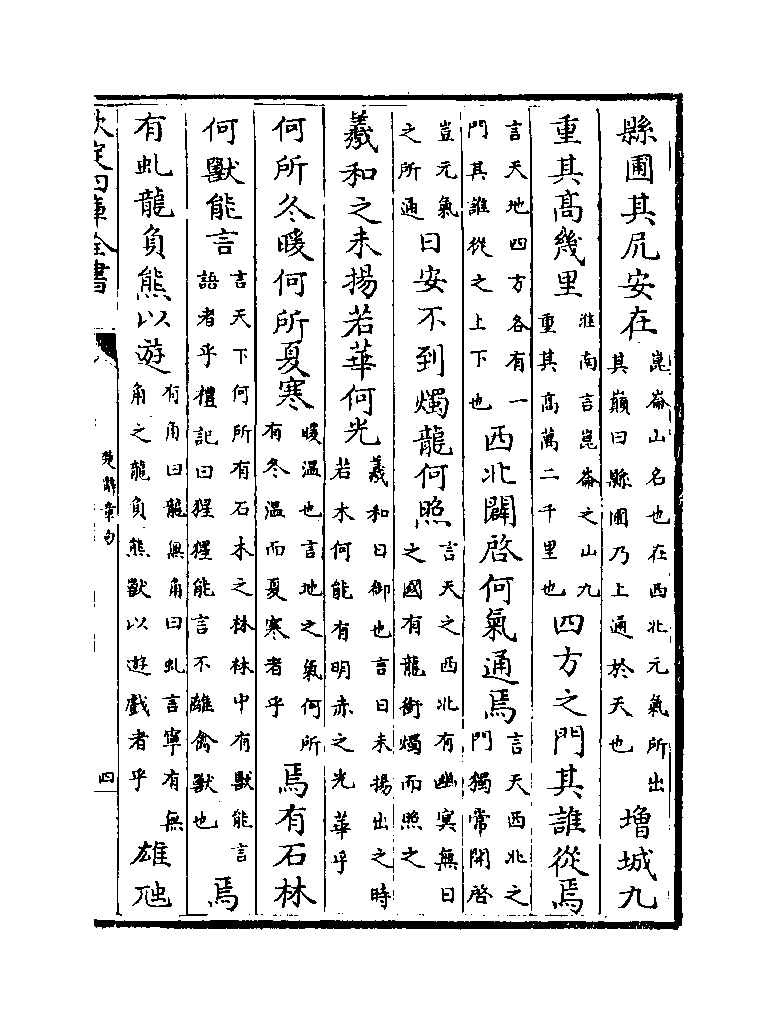 縣圃其凥安在崑崙山名也在西北元氣所出其巔曰縣圃乃上通於天也増城九
重其髙幾里淮南言崑崙之山九重其髙萬二千里也四方之門其誰從焉
言天地四方各有一門其誰從之上下也西北闢啓何氣通焉言天西北之門獨常開啓
豈元氣之所通日安不到燭龍何照言天之西北有幽冥無日之國有龍銜燭而照之
羲和之未揚若華何光羲和日御也言日未揚出之時若木何能有明赤之光華乎
何所冬暖何所夏寒暖温也言地之氣何所有冬温而夏寒者乎焉有石林
何獸能言言天下何所有石木之林林中有獸能言語者乎禮記曰猩猩能言不離禽獸也焉
有虬龍負熊以遊有角曰龍無角曰虬言寧有無角之龍負熊獸以遊戲者乎雄虺
欽定四庫全書
楚辭章句
四